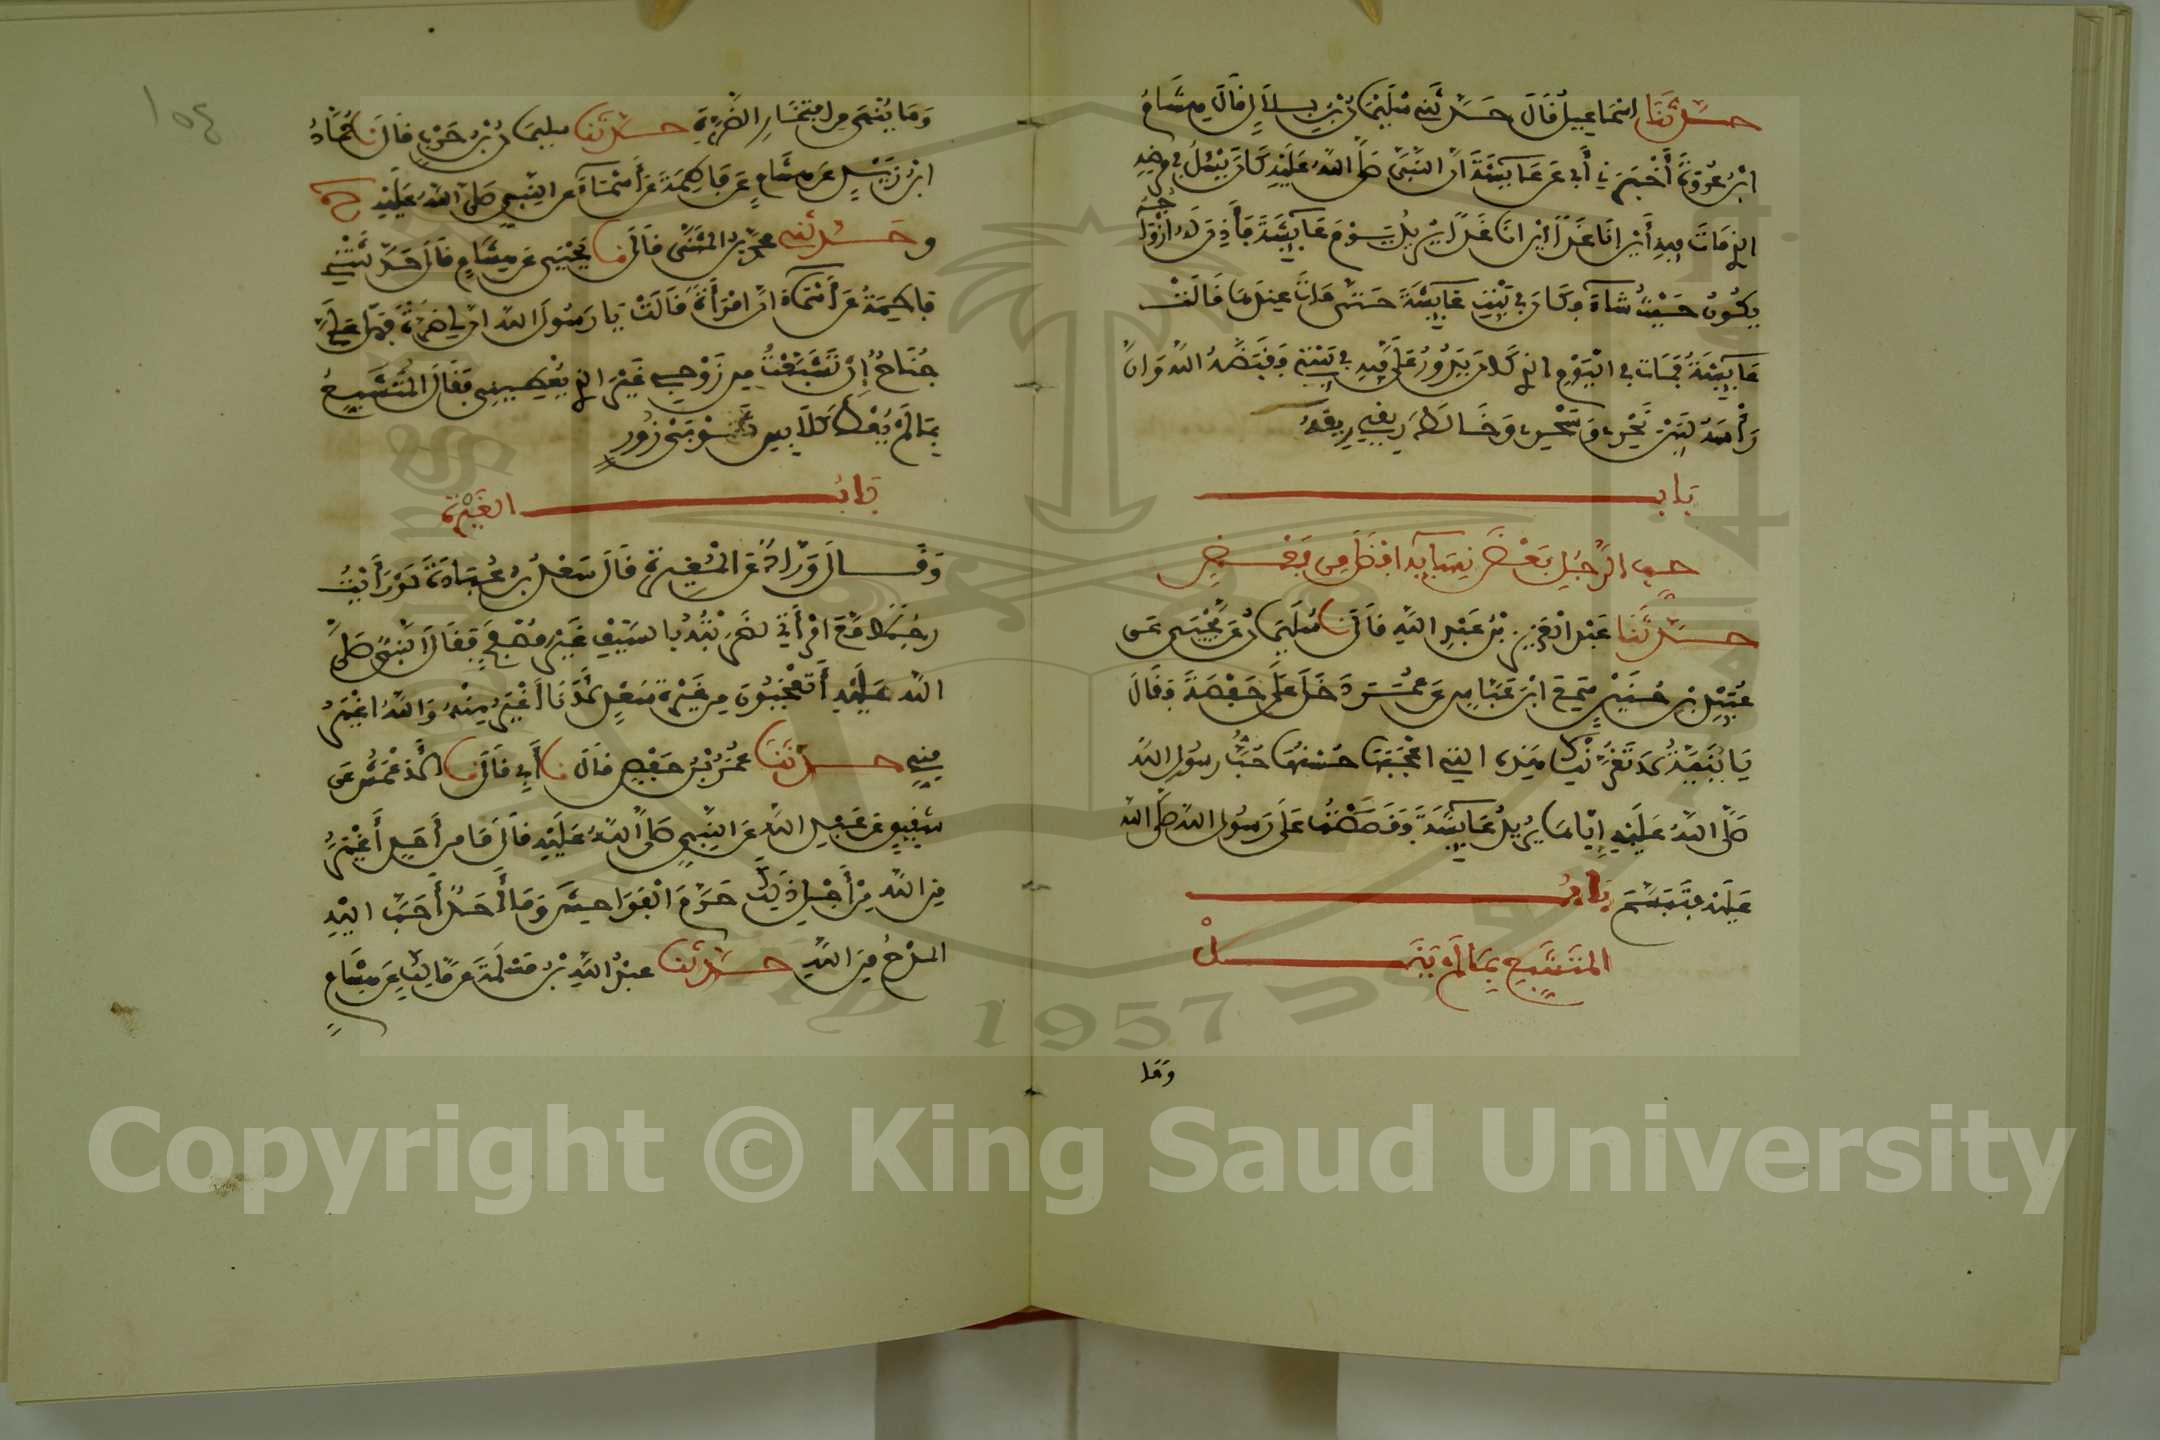 حدثنا اسماعيل قال حدثني سليمان بن بلال قال هشام
ابن عروة أخبرني أبي عن عائشة ان النبي صلى الله عليه كان يسئل في مرضه
الذي مات فيه أين انا غدا اين انا غدا يريد يوم عائشة فأذن له ازواجه
يكون حيث شاء وكان في بيت عائشة حتى مات عندها قالت
عائشة فمات في اليوم الذي كان يدور علي فيه في بيتي فقبضه الله وان
رأسه لبين نحري وسحري وخالط ريقي ريقه
باب
حب الرجل بعض نسائه افضل من بعض
حدثنا عبد العزيز بن عبد الله قال نا سليمان عن يحيى عن
عبيد بن حنين سمع ابن عباس عن عمر دخل على حفصة فقال
يا بنية لا تغرنك هذه التي اعجبها حسنها حب رسول الله
صلى الله عليه إياها يريد عائشة فقصصت على رسول الله صلى الله
عليه فتبسم باب
المتشبع بما لم ينل
وما
وما ينهى من افتخار الضرة حدثنا سليمان بن حرب قال نا حماد
ابن زيد عن هشام عن فاطمة عن أسماء عن النبي صلى الله عليه ح
وحدثني محمد بن المثنى قال نا يحيى عن هشام قال حدثتني
فاطمة عن أسماء ان امرأة قالت يا رسول الله ان لي ضرة فهل علي
جناح إن تشبعت من زوجي غير الذي يعطيني فقال المتشبع
بما لم يعط كلابس ثوبي زور
باب الغيرة
وقال وراد عن المغيرة قال سعد بن عبادة لو رأيت
رجلا مع امرأتي لضربته بالسيف غير مصفح فقال النبي صلى
الله عليه أتعجبون من غيرة سعد لأنا أغير منه والله اغير
مني حدثنا عمر بن حفص قال نا أبي قال نا الأعمش عن
شقيق عن عبد الله عن النبي صلى الله عليه قال ما من أحد أغير
من الله من أجل ذلك حرم الفواحش وما أحد أحب اليه
المدح من الله حدثنا عبد الله بن مسلمة عن مالك عن هشام
١٥٤
Copyright © King Saud University
1957